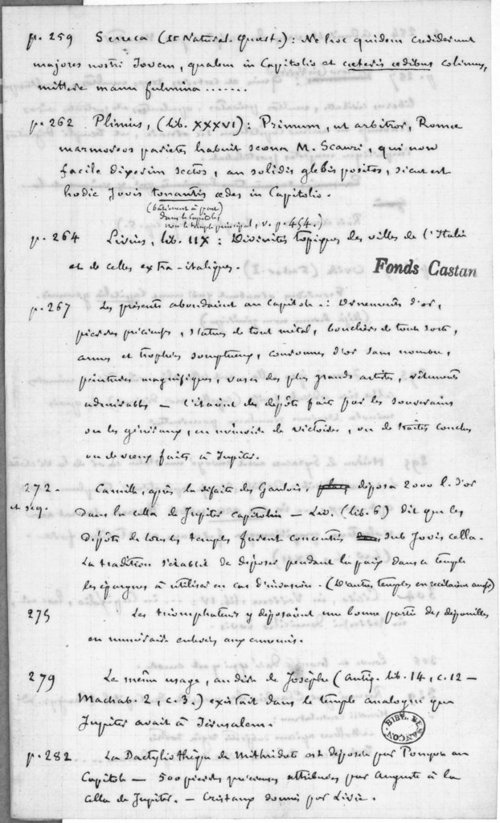 p. 259 Seneca (II Natural. Quæst.) : Ne hoc quidem crediderunt
majores nostri Jovem, qualem in Capitolio et cæteris ædibus colimus,
mittere manu fulmina .......
p. 262 Plinius, (lib. XXXVI) : Primum, ut arbitror, Romæ
marmoreos parietes habuit scena M. Scauri, qui non
facile dixerim sectos, an solidis glebis positos, sicut est
hodie Jovis tonantis ædes in Capitolio.
(bâtiment à part
dans le Capitole,
non le temple principal, v. p. 454.)
p. 264 Livius, lib. IIX : Divinités topiques des villes de l'Italie
et de celles extra-italiques.
Fonds Castan
p. 267 Les présents abondaient au Capitole : Couronnes d'or,
pierres précieuses, statues de tout métal, boucliers de toute sorte,
armes et trophées somptueux, couronnes d'or sans nombre,
peintures magnifiques, vases des plus grands artistes, vêtements
admirables — c'étaient des dépôts faits par les souverains
ou les généraux, en mémoire de victoires, ou de traités conclus
ou de vœux faits à Jupiter.
272 - Camille, après la défaite des Gaulois, déposa 2000 l. d'or
et seq. dans la cella de Jupiter capitolin — Liv. (lib. 6) dit que les
dépôts de tous les temples furent concentrés sub Jovis cella.
La tradition s'établit de déposer pendant la paix dans ce temple
les épargnes à utiliser en cas d'invasion.
275 Les triomphateurs y déposaient une bonne partie des dépouilles
en numéraire enlevés aux ennemis.
279 Le même usage, au dire de Josèphe (Antiq. lib. 14, c. 12 —
Machab. 2, c. 3.) existait dans le temple analogue que
Jupiter avait à Jérusalem.
p. 282 La Dactyliothèque de Mithridate est déposée par Pompée au
Capitole — 500 pierres précieuses attribuées par Auguste à la
cella de Jupiter. — Cristaux donnés par Livie.